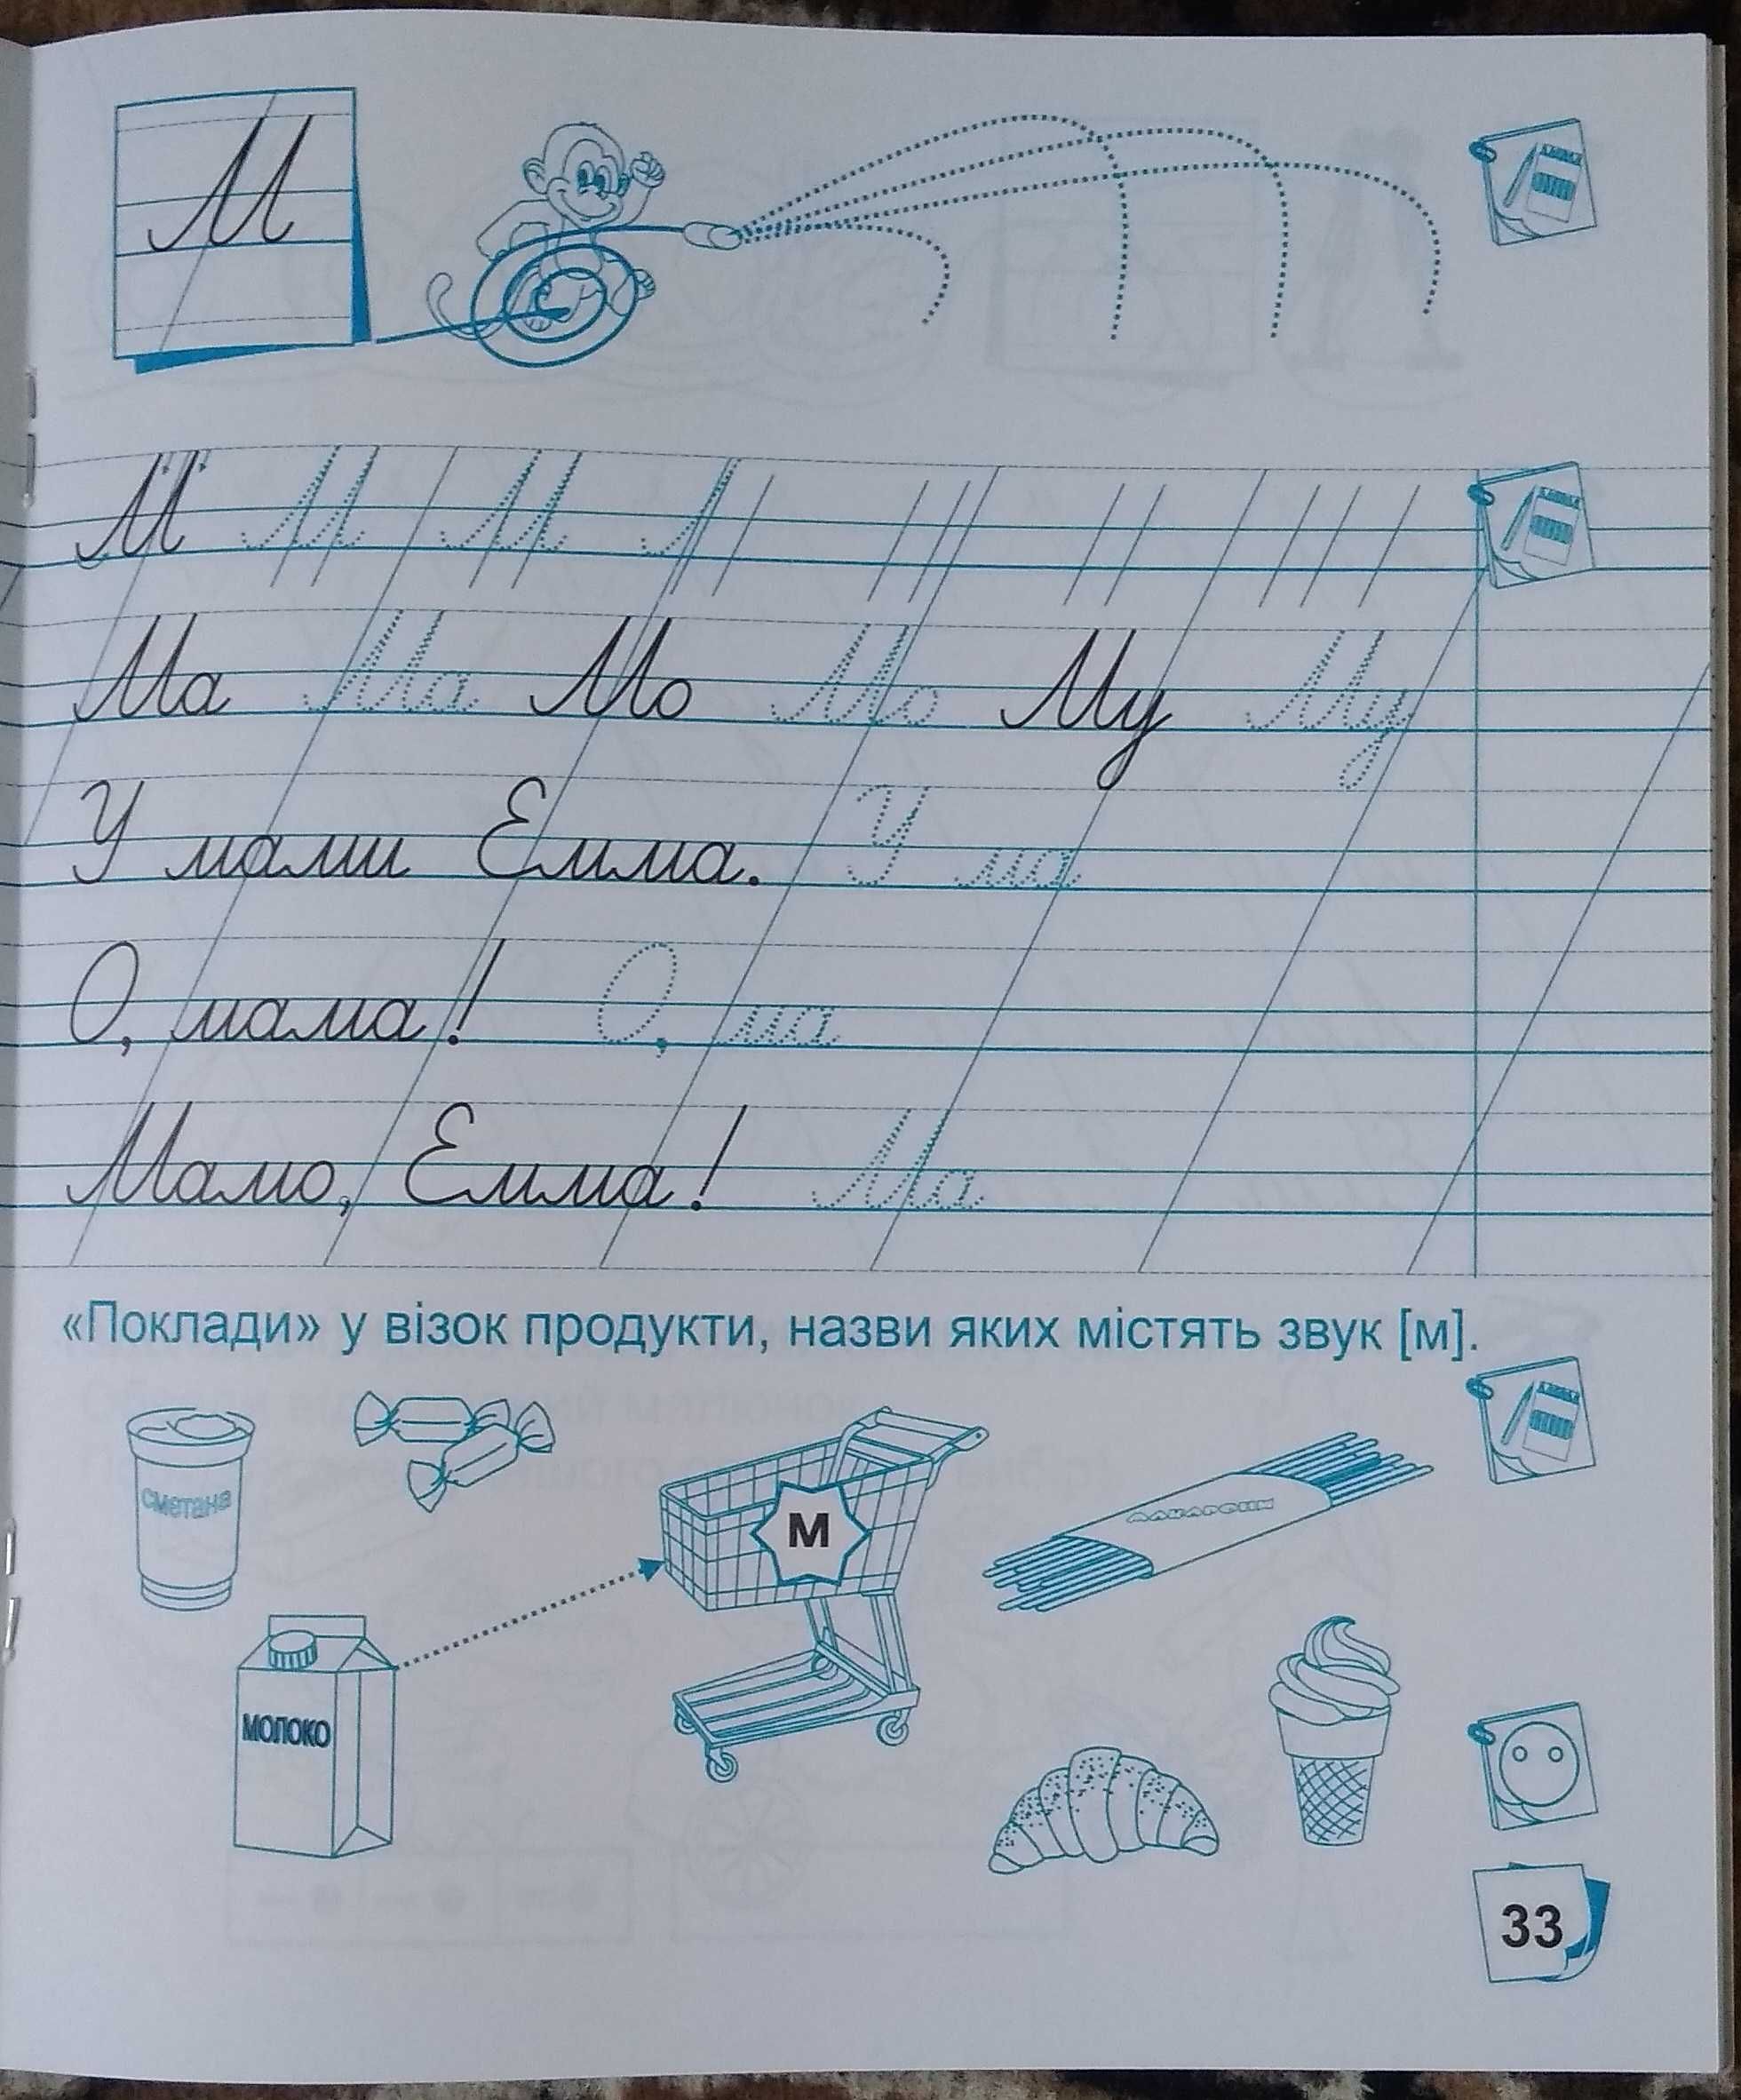 М
М М М
Ма Ма Мо Мо Му Му
У мами Емма. У ма
О, мама! О, ма
Мамо, Емма! Ма
«Поклади» у візок продукти, назви яких містять звук [м].
сметана
М
макарони
МОЛОКО
33